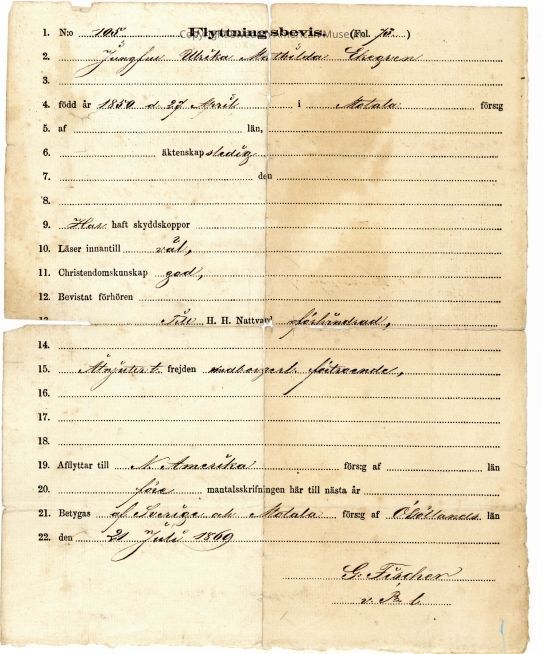 1. N:o 105 Flyttningsbevis. (Fol. 73.)
2. Jungfru Ulrika Mathilda Ekegren
3.
4. född år 1850 d 27 April i Motala förs:g
5. af län,
6. äktenskap stedig
7. den
8.
9. Har haft skyddskoppor
10. Läser innantill väl,
11. Christendomskunskap god,
12. Bevistat förhören
13. Till H. H. Nattvard oförhindrad,
14.
15. Åtnjuter t. frejden medborgerl. förtroende,
16.
17.
18.
19. Afflyttar till N. Amerika förs:g af län
20. före mantalsskrifningen här till nästa år
21. Betygas af Sverige och Motala förs:g af län
22. den 21 Juli 1869
G. Fischer